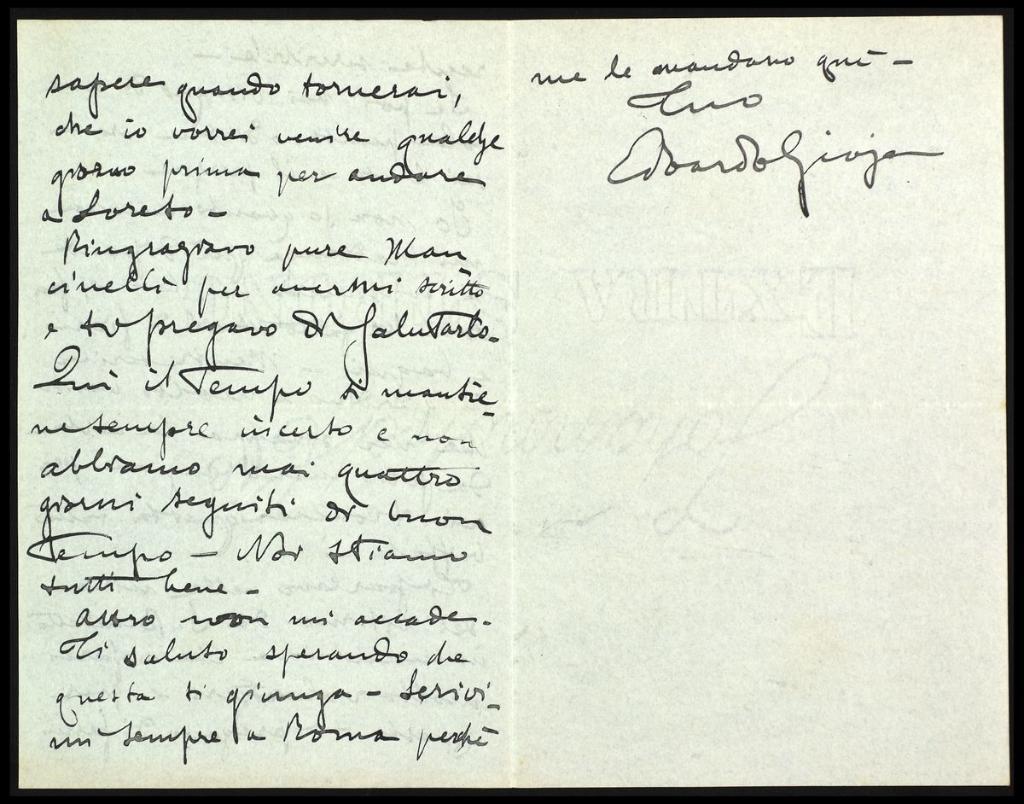 sapere quando tornerai,
che io vorrei venire qualche
giorno prima per andare
a Loreto –
Ringraziavo pure Man
cinelli per avermi scritto
e ti pregavo di Salutarlo –
Qui il Tempo si mantie_
ne sempre incerto e non
abbiamo mai quattro
giorni seguiti di buon
Tempo – Noi stiamo
tutti bene –
Altro non mi accade –
Ti saluto sperando che
questa ti giunga – Scrivi_
mi sempre a Roma perchè
me le mandano quì –
Tuo
Edoardo Gioja